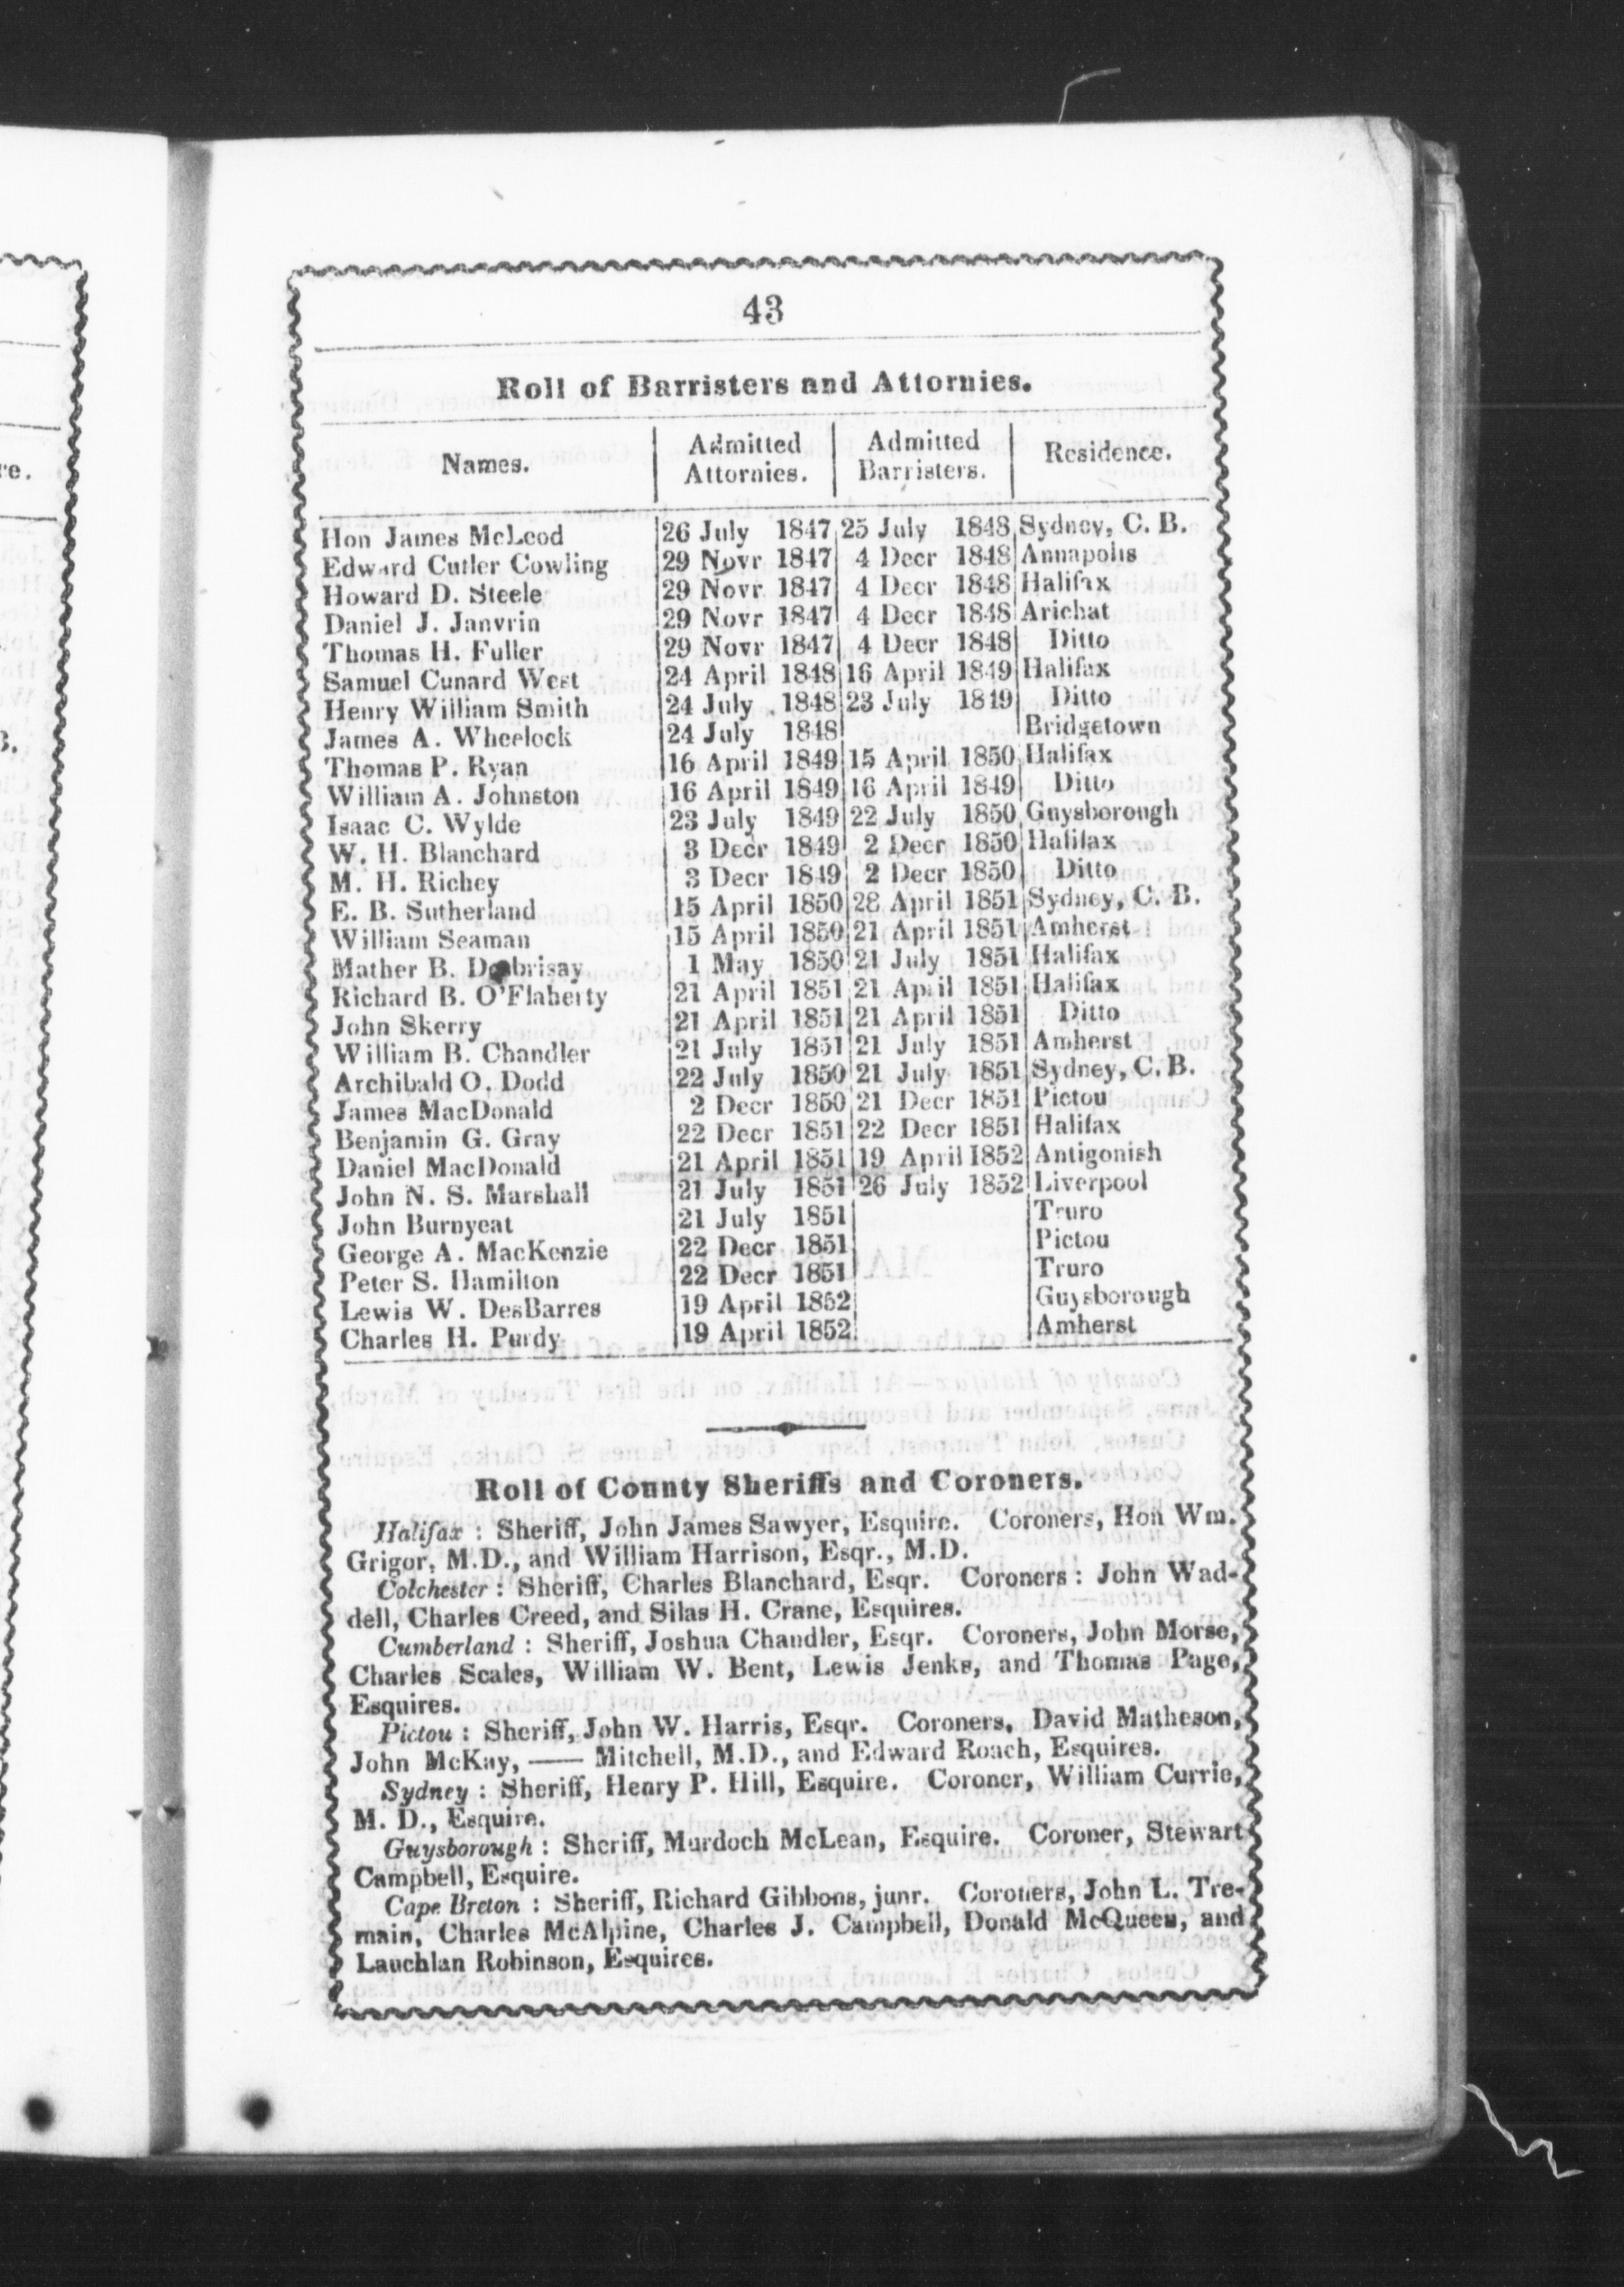 43
Roll of Barristers and Attornies.
Names. Admitted Attornies. Admitted Barristers. Residence.
Hon James McLeod 26 July 1847 25 July 1848 Sydney, C. B.
Edward Cutler Cowling 29 Novr 1847 4 Decr 1848 Annapolis
Howard D. Steele 29 Novr 1847 4 Decr 1848 Halifax
Daniel J. Janvrin 29 Novr 1847 4 Decr 1848 Arichat
Thomas H. Fuller 29 Novr 1847 4 Decr 1848 Ditto
Samuel Cunard West 24 April 1848 16 April 1849 Halifax
Henry William Smith 24 July 1848 23 July 1849 Ditto
James A. Wheelock 24 July 1848 Bridgetown
Thomas P. Ryan 16 April 1849 15 April 1850 Halifax
William A. Johnston 16 April 1849 16 April 1849 Ditto
Isaac C. Wylde 23 July 1849 22 July 1850 Guysborough
W. H. Blanchard 3 Decr 1849 2 Decr 1850 Halifax
M. H. Richey 3 Decr 1849 2 Decr 1850 Ditto
E. B. Sutherland 15 April 1850 28 April 1851 Sydney, C. B.
William Seaman 15 April 1850 21 April 1851 Amherst
Mather B. Desbrisay 1 May 1850 21 July 1851 Halifax
Richard B. O'Flaherty 21 April 1851 21 April 1851 Halifax
John Skerry 21 April 1851 21 April 1851 Ditto
William B. Chandler 21 July 1851 21 July 1851 Amherst
Archibald O. Dodd 22 July 1850 21 July 1851 Sydney, C. B.
James MacDonald 2 Decr 1850 21 Decr 1851 Pictou
Benjamin G. Gray 22 Decr 1851 22 Decr 1851 Halifax
Daniel MacDonald 21 April 1851 19 April 1852 Antigonish
John N. S. Marshall 21 July 1851 26 July 1852 Liverpool
John Burnyeat 21 July 1851 Truro
George A. MacKenzie 22 Decr 1851 Pictou
Peter S. Hamilton 22 Decr 1851 Truro
Lewis W. DesBarres 19 April 1852 Guysborough
Charles H. Purdy 19 April 1852 Amherst
Roll of County Sheriffs and Coroners.
Halifax : Sheriff, John James Sawyer, Esquire. Coroners, Hon Wm.
Grigor, M.D., and William Harrison, Esqr., M.D.
Colchester : Sheriff, Charles Blanchard, Esqr. Coroners : John Wad-
dell, Charles Creed, and Silas H. Crane, Esquires.
Cumberland : Sheriff, Joshua Chandler, Esqr. Coroners, John Morse,
Charles Scales, William W. Bent, Lewis Jenks, and Thomas Page,
Esquires.
Pictou : Sheriff, John W. Harris, Esqr. Coroners, David Matheson,
John McKay, —— Mitchell, M.D., and Edward Roach, Esquires.
Sydney : Sheriff, Henry P. Hill, Esquire. Coroner, William Currie,
M. D., Esquire.
Guysborough : Sheriff, Murdoch McLean, Esquire. Coroner, Stewart
Campbell, Esquire.
Cape Breton : Sheriff, Richard Gibbons, junr. Coroners, John L. Tre-
main, Charles McAlpine, Charles J. Campbell, Donald McQueen, and
Lauchlan Robinson, Esquires.